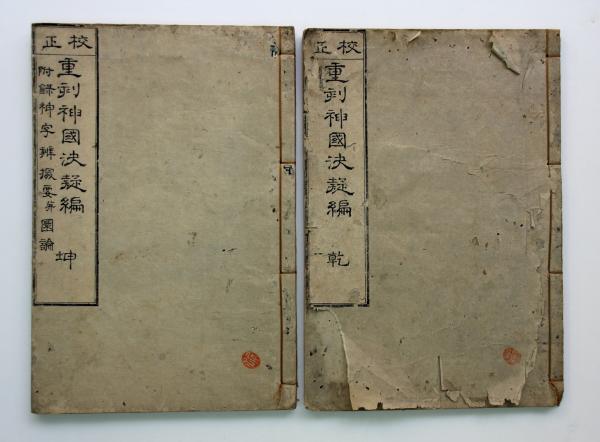 校正
重刻神國決疑編 乾
校正
重刻神國決疑編 坤
附錄神字辨撮要并圖論